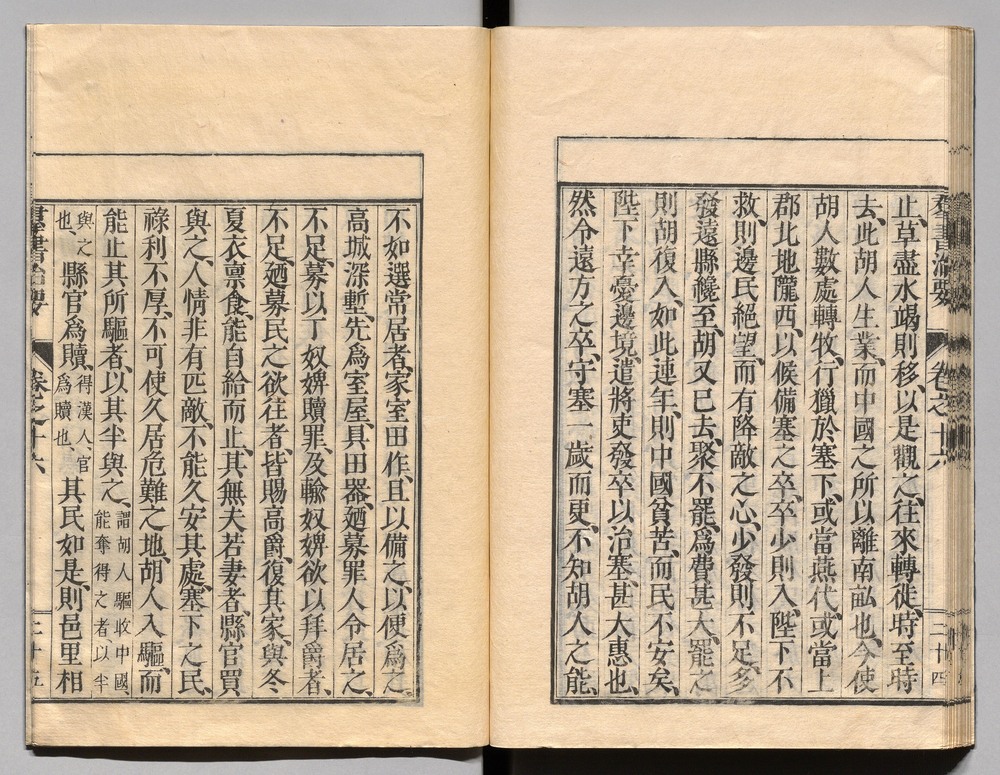 羣書治要 卷之十六 二十四
止、草盡水竭則移、以是觀之、往來轉徙、時至時
去、此胡人生業、而中國之所以離南畝也、今使
胡人數處轉牧、行獵於塞下、或當燕代、或當上
郡北地隴西、以候備塞之卒、卒少則入、陛下不
救、則邊民絕望、而有降敵之心、少發則不足、多
發遠縣纔至、胡又已去、聚不罷、爲費甚大、罷之
則胡復入、如此連年、則中國貧苦、而民不安矣、
陛下幸憂邊境、遣將吏發卒以治塞、甚大惠也、
然令遠方之卒、守塞一歲而更、不知胡人之能、
不如選常居者、家室田作、且以備之、以便爲之、
高城深塹、先爲室屋、具田器、廼募罪人令居之、
不足、募以丁奴婢贖罪、及輸奴婢欲以拜爵者、
不足、廼募民之欲往者、皆賜高爵、復其家、與冬
夏衣禀食、能自給而止、其無夫若妻者、縣官買
與之、人情非有匹敵、不能久安其處、塞下之民、
祿利不厚、不可使久居危難之地、胡人入驅、而
能止其所驅者、以其半與之、謂胡人驅收中國、能奪得之者、以半
與之也、縣官爲贖、得漢人官爲贖也、其民如是、則邑里相
羣書治要 卷之十六 二十五